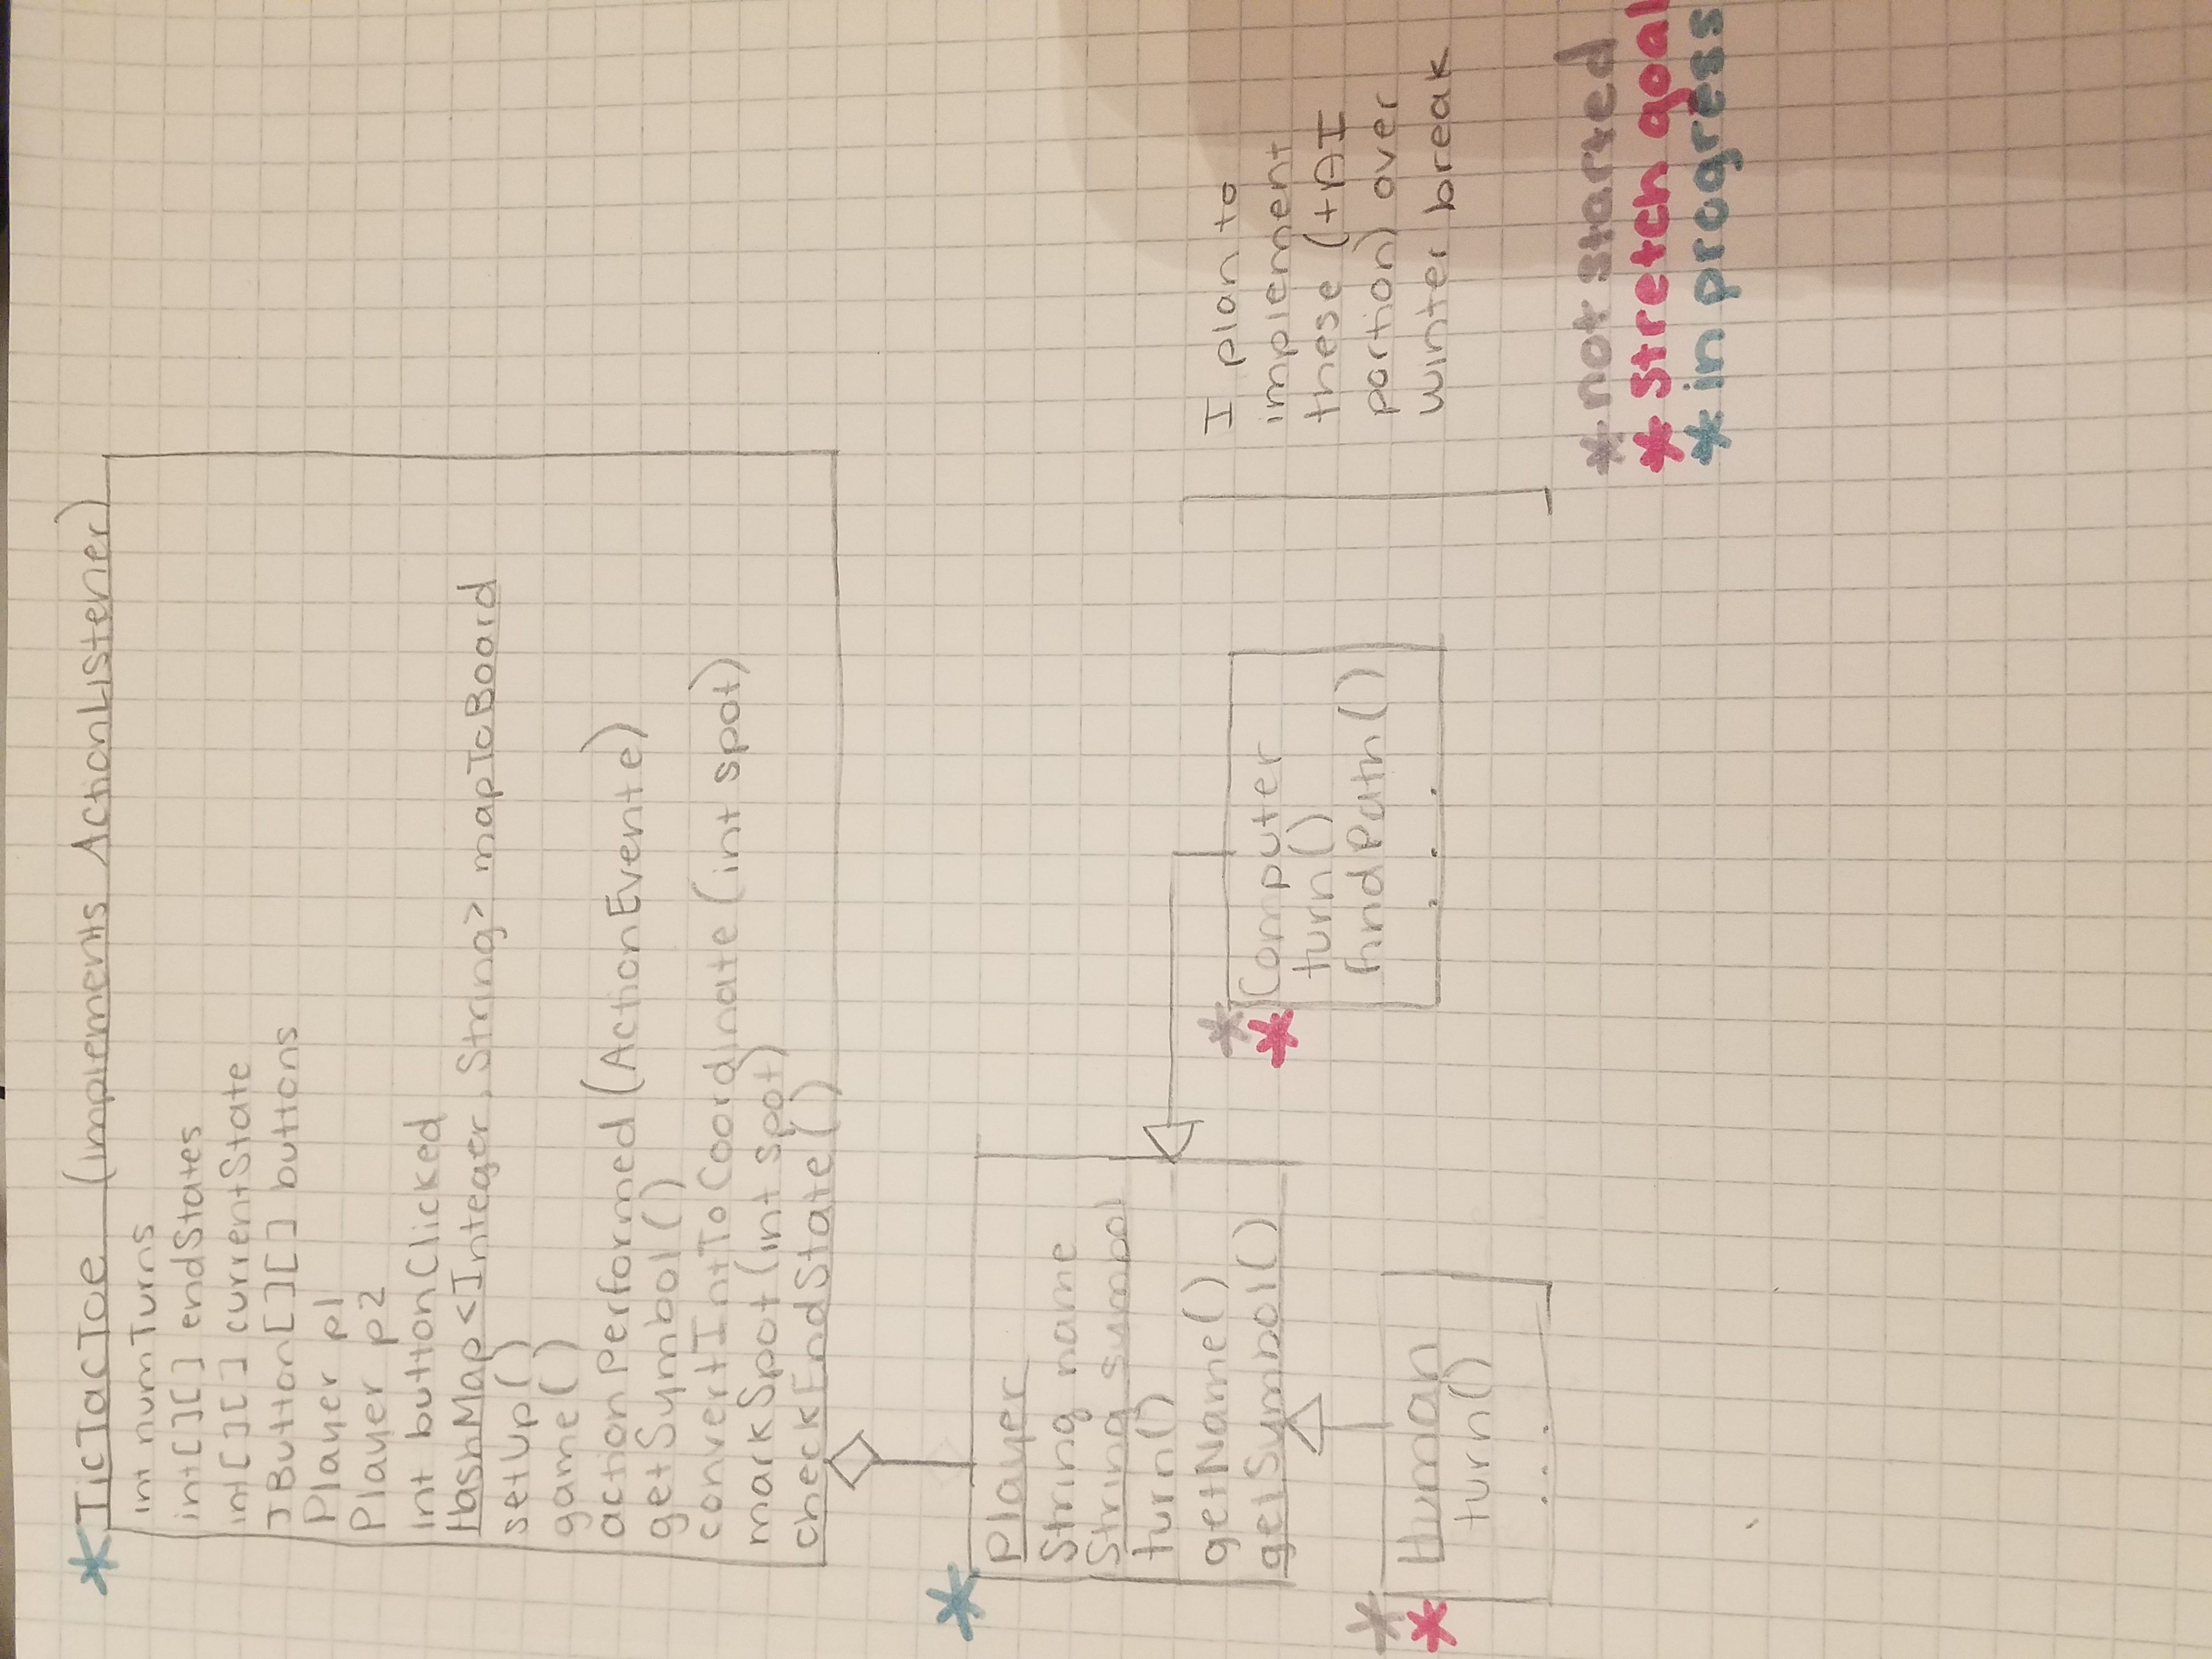 * TicTacToe (implements ActionListener)
int numTurns
int[][] endStates
int[][] currentState
JButton[][] buttons
Player p1
Player p2
int buttonClicked
HashMap<Integer, String> mapToBoard
setUp()
game()
actionPerformed(ActionEvent e)
getSymbol()
convertIntToCoordinate(int spot)
markSpot(int spot)
checkEndState()
*
Player
String name
String symbol
turn()
getName()
getSymbol()
*
* Computer
turn()
findPath()
. . .
*
* Human
turn()
. . .
I plan to
implement
these (+AI
portion) over
winter break
* not started
* stretch goal
* in progress